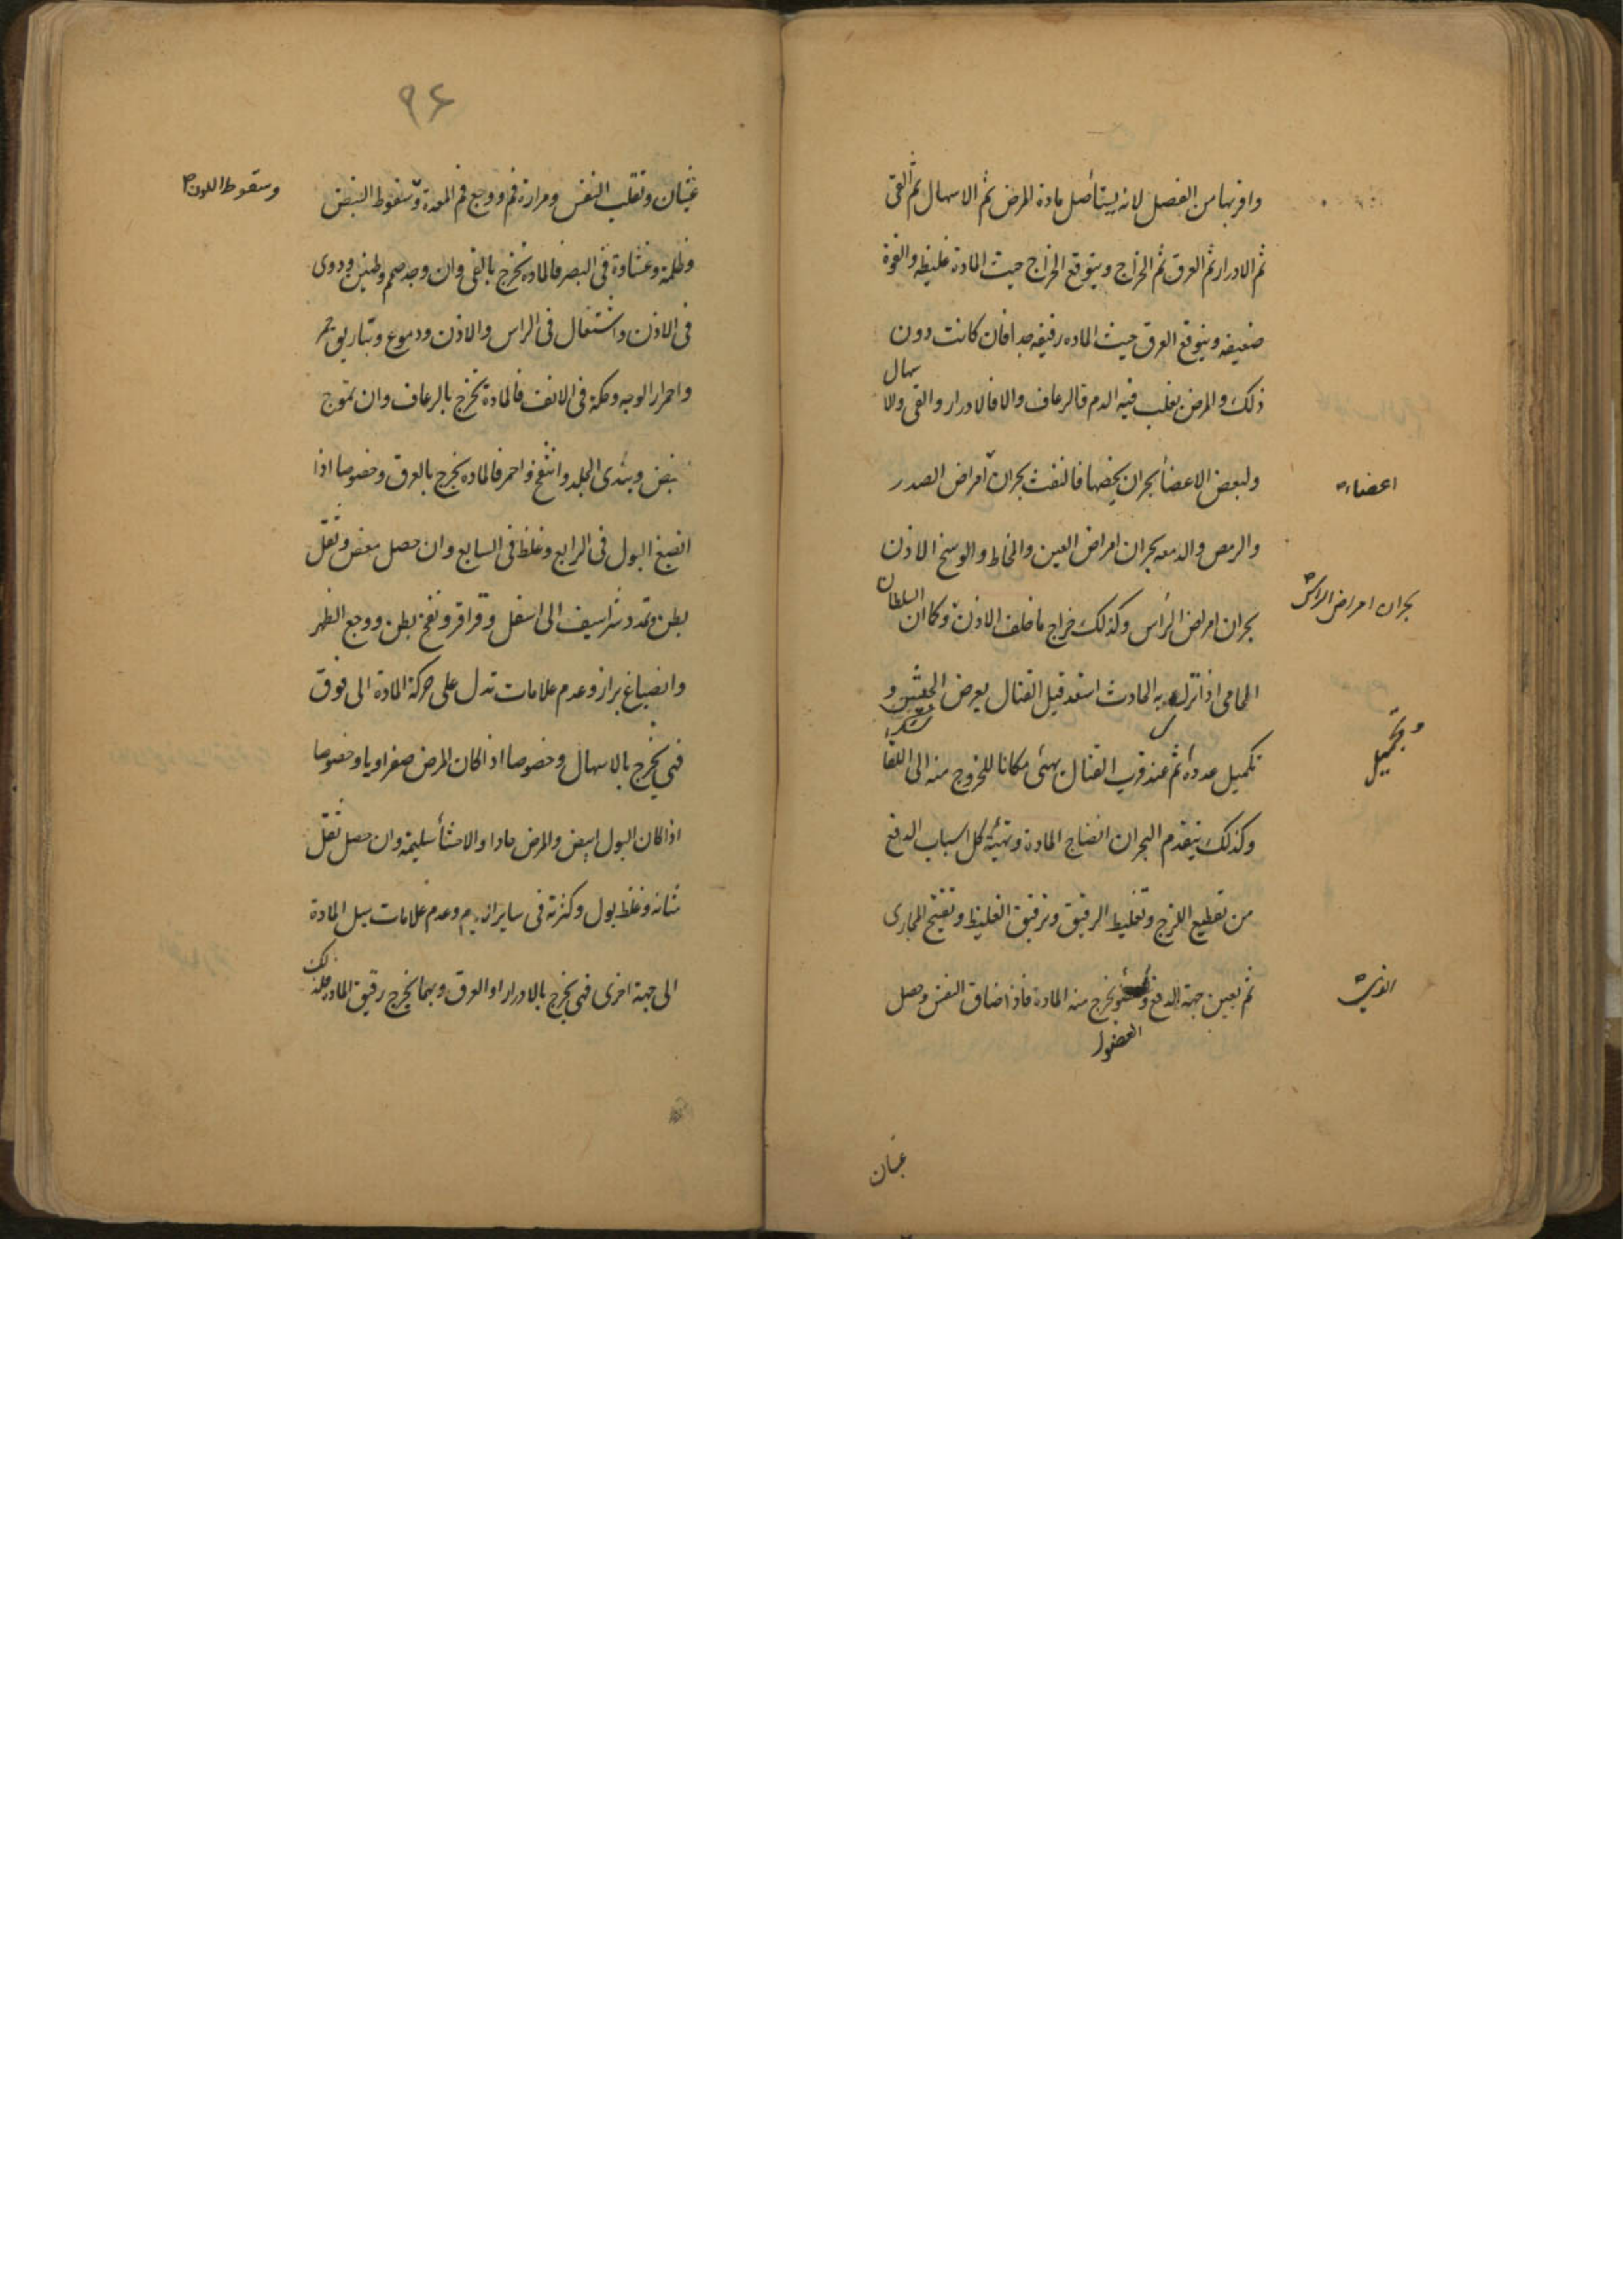 واقربها من الفصل لانه يستأصل مادة المرض ثم الاسهال ثم القى
ثم الادرار ثم العرق ثم الخراج ويتوقع الخراج حيث المادة غليظه والقوة
ضعيفه ويتوقع العرق حيث الماده رقيقه جدا فان كانت دون
ذلك والمرض يغلب فيه الدم فالرعاف والا فالادرار والقى والا
سهال
ولبعض الاعضأ بحران يخصها فالنفث بحران امراض الصدر
اعضاء
والرمص والدمعه بحران امراض العين والمخاط والوسخ الاذن
بحران امراض الراس
بحران امراض الرأس وكذلك خراج ما خلف الاذن وكما ان
السلطان
الحامى اذا نزل به الحادث استعد قبل القتال بعرض الجيش و
تكميل عدده ثم عند قرب القتال يهئى مكانا للخروج منه الى اللقا
وتجميل
وكذلك يتقدم البحران انضاج المادة وتهيئة كل اسباب الدفع
من تقطيع اللزج وتغليظ الرقيق وترقيق الغليظ وتفتيح المجارى
ثم تعين جهة الدفع و يخرج منه المادة فاذا ضاق النفس وحصل
العضو
الذى
غثيان
۹۶
غثيان وتقلب النفس ومرارة فم ووجع فم المعدة وسقوط النبض
وسقوط اللون
وظلمة وغشاوة فى البصر فالماده تخرج بالقى وان وجد صمم وطنين ودوى
فى الاذن واشتعال فى الراس والاذن ودموع وتباريق حمر
واحمرار الوجه وحكة فى الانف فالمادة تخرج بالرعاف وان تموج
نبض وبندى الجلد وانتفخ واحمر فالماده يخرج بالعرق وخصوصا اذا
انصبغ البول فى الرابع وغلظ فى السابع وان حصل مغص وثقل
بطن وتمدد شراسيف الى اسفل وقراقر ونفخ بطن ووجع الظهر
وانصباغ براز وعدم علامات تدل على حركة المادة الى فوق
فهى يخرج بالاسهال وخصوصا اذا كان المرض صفراويا وخصوصا
اذا كان البول ابيض والمرض حادا والاحشأ سليمة وان حصل ثقل
مثانه وغلظ بول وكثرته فى ساير وعدم علامات ميل المادة
الى جهة اخرى فهى يخرج بالادرار او العرق وبهما يخرج رقيق الماده فلذ
لك